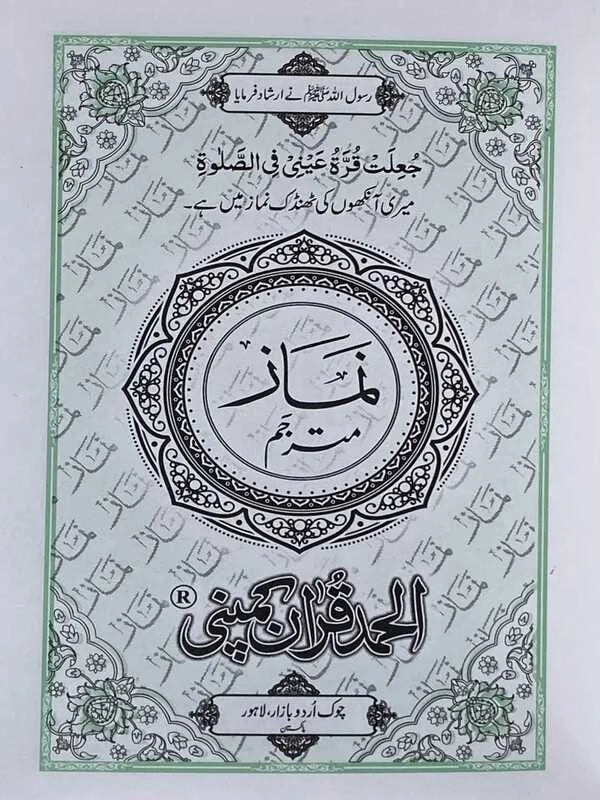 رسول اللہ ﷺ نے ارشاد فرمایا
جُعِلَتْ قُرَّةُ عَيْنِیْ فِی الصَّلٰوةِ
میری آنکھوں کی ٹھنڈک نماز میں ہے۔
نَمَاز
مترجَم
الحمد قُرآن کمپنی ®
چوک اُردو بازار، لاہور
پاکستان